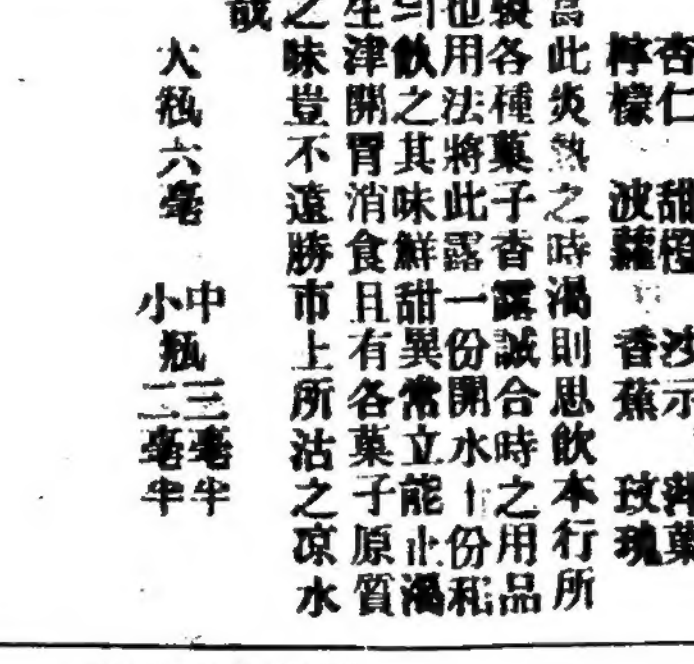 杏仁 甜橙 沙示 蘋菓
檸檬 波蘿 香蕉 玫瑰
為此炎熱之時渴則思飲本行所
製各種菓子香露誠合時之用品
也用法將此露一份開水十份和
勻飲之其味鮮甜異常立能止渴
生津開胃消食且有各菓子原質
之味豈不遠勝市上所沽之凉水
哉
大瓶六毫 中瓶三毫半
小瓶二毫半